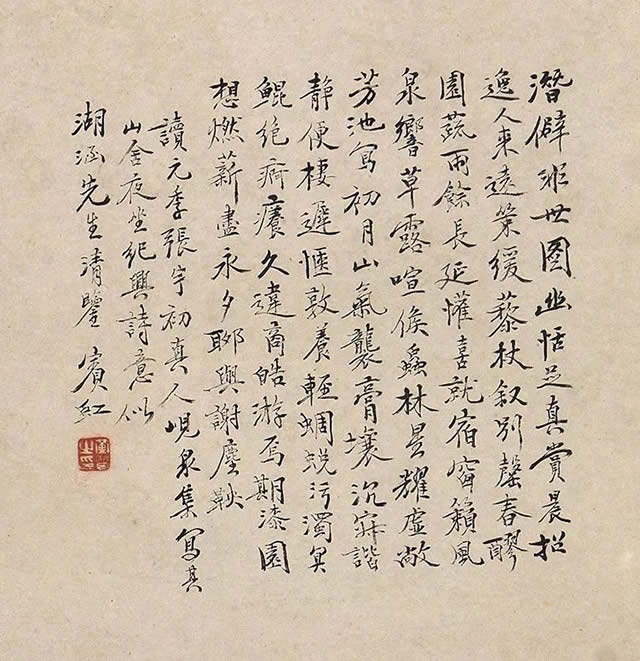 潛僻非世圖幽恬足真賞晨招
逸人来遠策緩藜杖叙別罄春醪
園蔬雨餘長延懽喜就宿窗籟風
泉響草露喧候蟲林星耀虛敞
芳池寫初月山氣襲膏壤沉寂諧
静便棲遲愜敦養輕蜩蛻污濁冥
鯤絶痾癢久違商皓游焉期漆園
想燃薪盡永夕聊與謝塵鞅
讀元季張宇初真人峴泉集寫其
山舍夜坐紀興詩意似
湖涵先生清鑒 賓虹